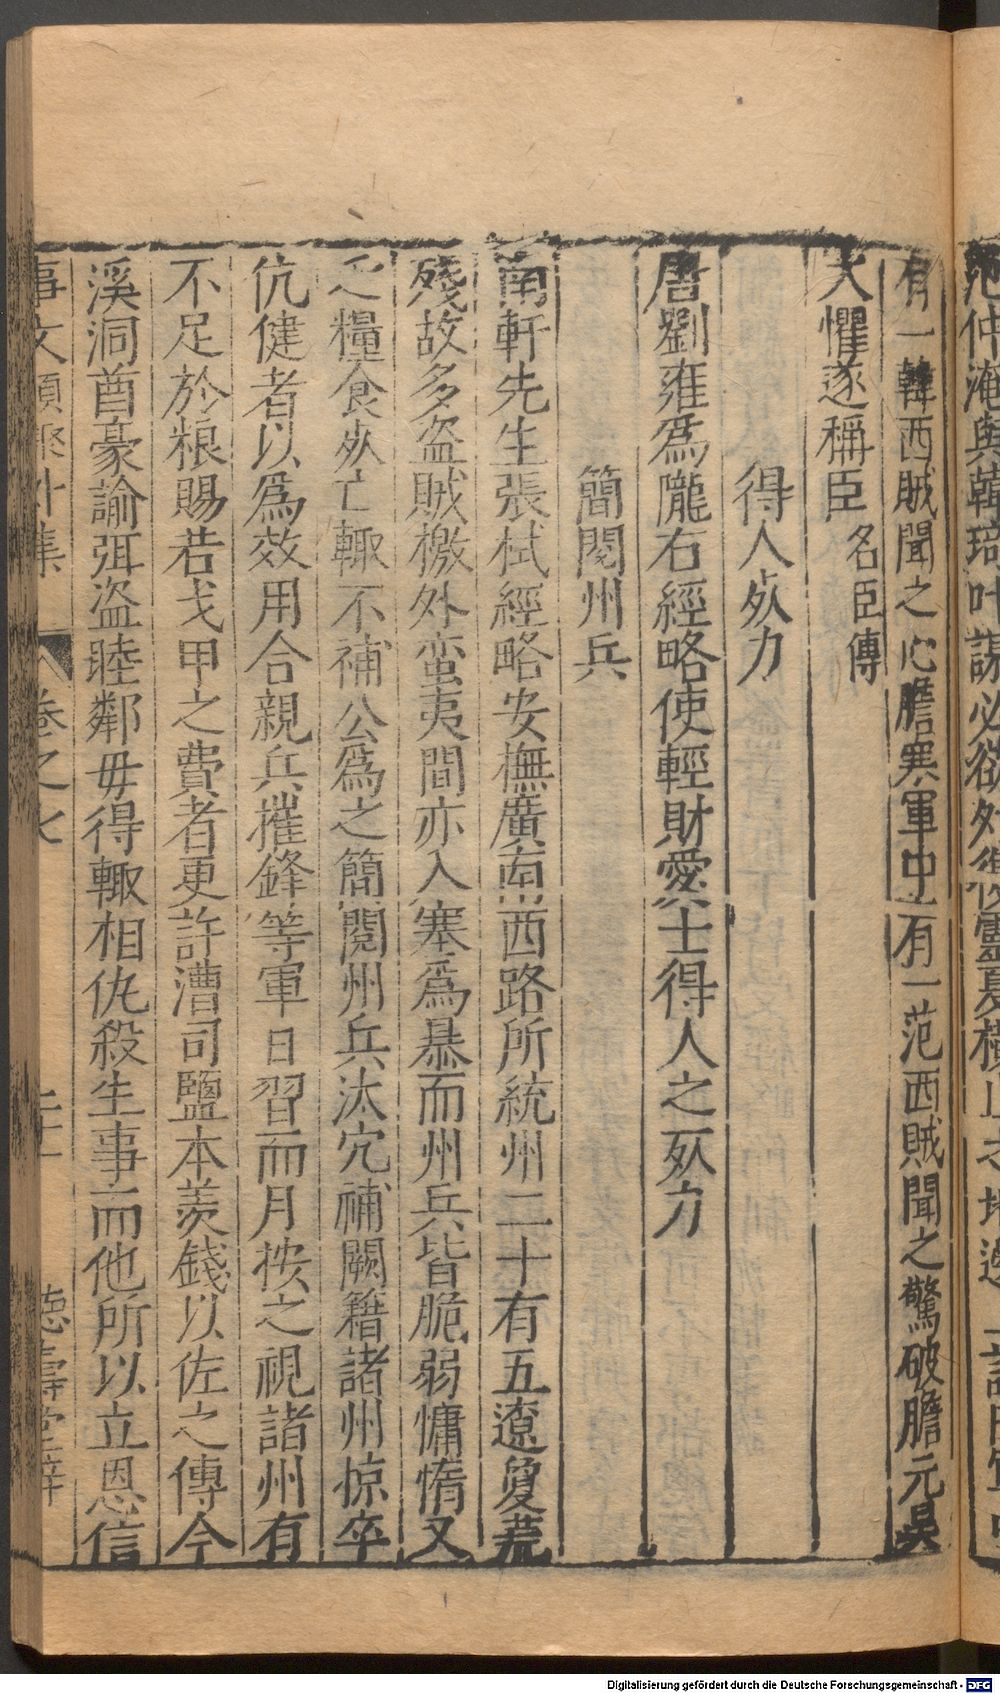 范仲淹與韓琦叶謀必欲外復靈夏橫山之地邊上謠曰軍中
有一韓西賊聞之心膽寒軍中有一范西賊聞之驚破膽元昊
大懼遂稱臣 名臣傳
得人死力
唐劉雍爲隴右經略使輕財愛士得人之死力
簡閱州兵
南軒先生張栻經略安撫廣南西路所統州二十有五遼敻荒
殘故多盜賊檄外蛮夷間亦入塞爲暴而州兵皆脆弱慵惰又
乏糧食死亡輙不補公爲之簡閱州兵汰冗補闕籍諸州掠卒
伉健者以爲效用合親兵摧鋒等軍日習而月按之視諸州有
不足於粮賜若戈甲之費者更許漕司鹽本羡錢以佐之傳今
溪洞酋豪諭弭盗睦鄰毋得輙相仇殺生事而他所以立恩信
事文類聚外集 卷之七 二十 德壽堂梓
Digitalisierung gefördert durch die Deutsche Forschungsgemeinschaft - DFG